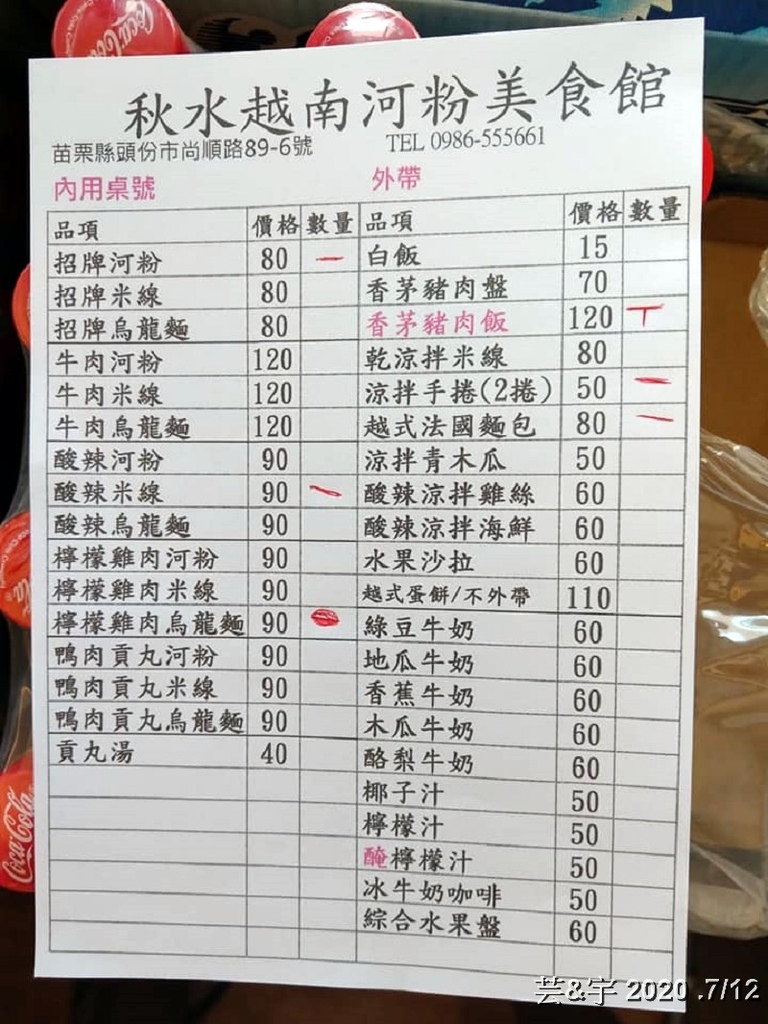 Coca-Cola
秋水越南河粉美食館
苗栗縣頭份市尚順路89-6號 TEL 0986-555661
內用桌號 外帶
品項 價格 數量 品項 價格 數量
招牌河粉 80 一 白飯 15
招牌米線 80 香茅豬肉盤 70
招牌烏龍麵 80 香茅豬肉飯 120 丅
牛肉河粉 120 乾涼拌米線 80
牛肉米線 120 涼拌手捲(2捲) 50 一
牛肉烏龍麵 120 越式法國麵包 80 一
酸辣河粉 90 涼拌青木瓜 50
酸辣米線 90 一 酸辣涼拌雞絲 60
酸辣烏龍麵 90 酸辣涼拌海鮮 60
檸檬雞肉河粉 90 水果沙拉 60
檸檬雞肉米線 90 越式蛋餅/不外帶 110
檸檬雞肉烏龍麵 90 綠豆牛奶 60
鴨肉貢丸河粉 90 地瓜牛奶 60
鴨肉貢丸米線 90 香蕉牛奶 60
鴨肉貢丸烏龍麵 90 木瓜牛奶 60
貢丸湯 40 酪梨牛奶 60
椰子汁 50
檸檬汁 50
醃檸檬汁 50
冰牛奶咖啡 50
綜合水果盤 60
Coca-Cola
芸&宇 2020 .7/12